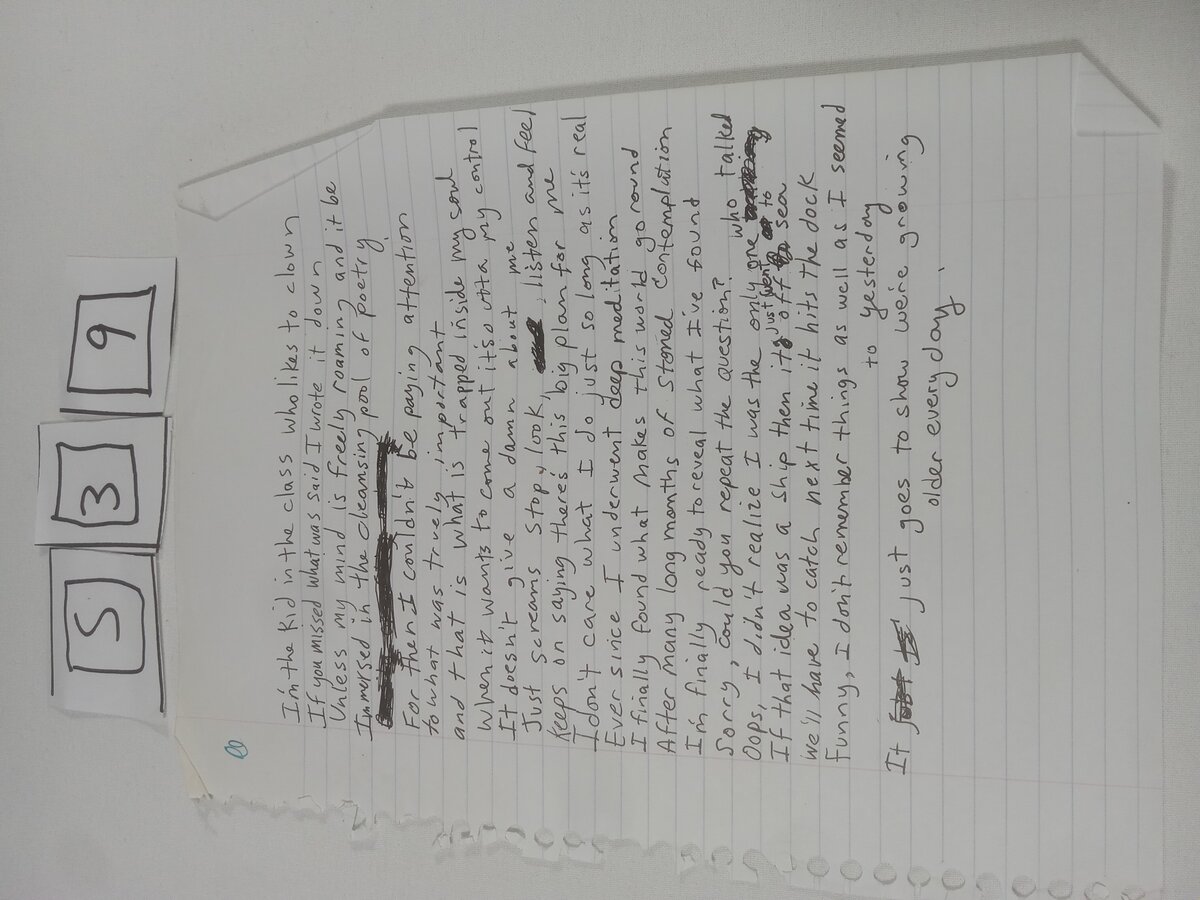 5 3 9
I'm the kid in the class who likes to clown
If you missed what was said I wrote it down
Unless my mind is freely roaming and it be
Immersed in the cleansing pool of poetry
For then I couldn't be paying attention
to what was truely important
and that is what is trapped inside my soul
When it wants to come out it's outta my control
It doesn't give a damn about me
Just screams stop, look, listen and feel
Keeps on saying there's this big plan for me
I don't care what I do just so long as it's real
Ever since I underwent deep meditation
I finally found what makes this world go round
After many long months of stoned contemplation
I'm finally ready to reveal what I've found
Sorry, could you repeat the question?
Oops, I didn't realize I was the only one who talked
If that idea was a ship them it just went off to sea
we'll have to catch next time it hits the dock
Funny, I don't remember things as well as I seemed
to yesterday
It just goes to show we're growing
older every day.